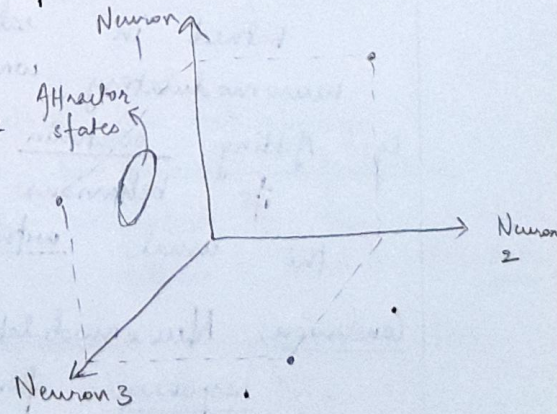 Neuron
1
Attractor
states
Neuron
2
Neuron 3